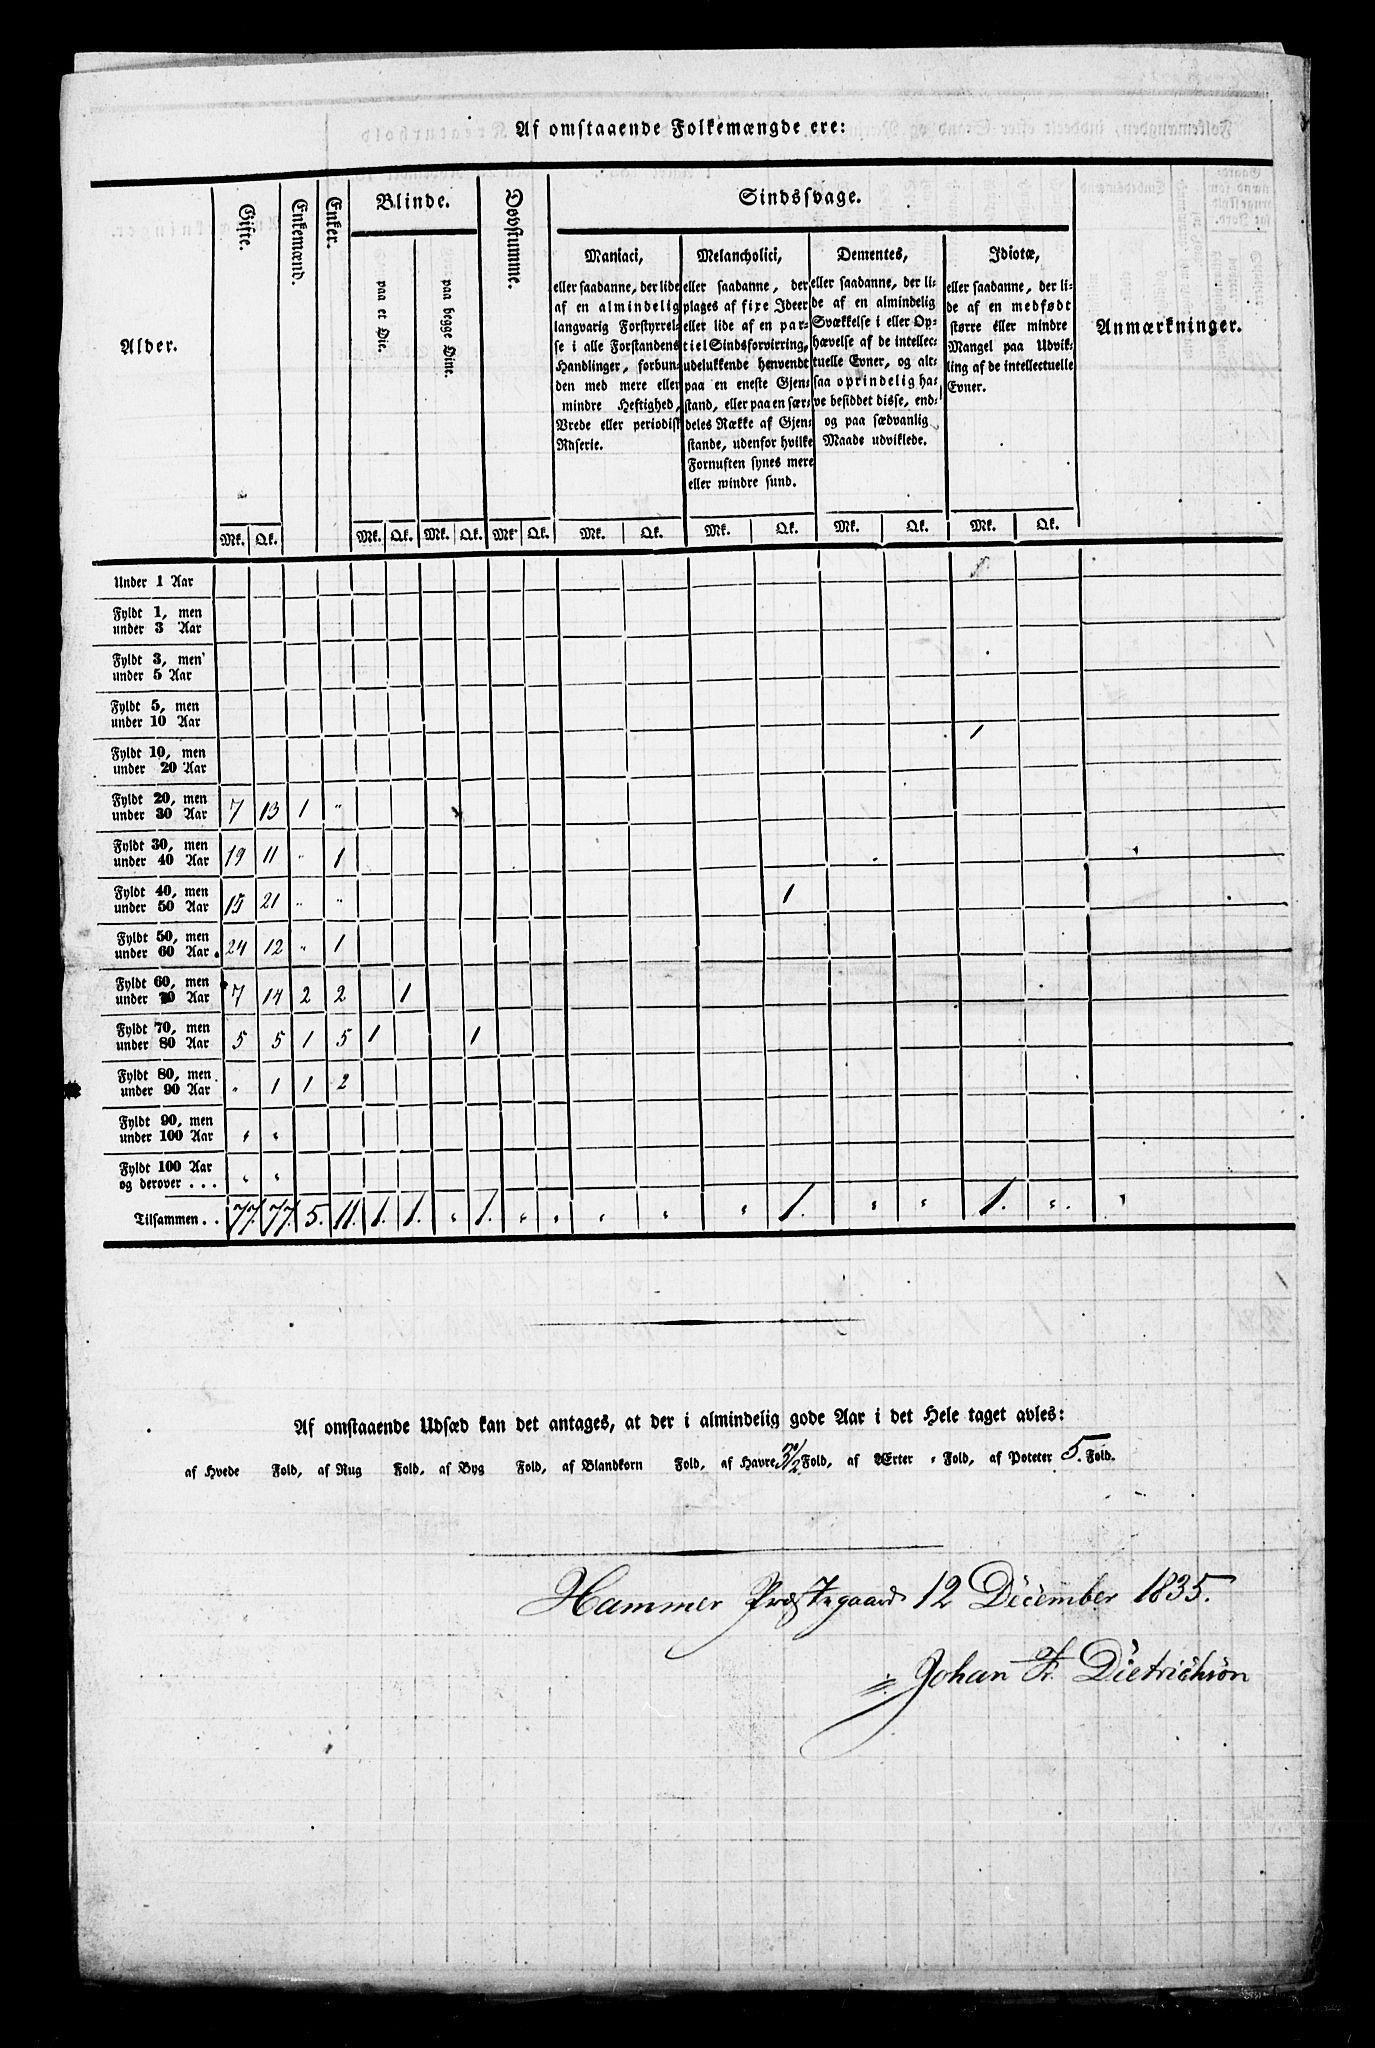 Af omstaaende Folkemængde ere:
Alder.
Gifte.
Enkemænd.
Enker.
Blinde.
paa et Øie.
paa begge Øine.
Døvstumme.
Sindssvage.
Maniaci,
eller saadanne, der lide
af en almindelig
langvarig Forstyrrel-
se i alle Forstandens
Handlinger, forbun-
den med mere eller
mindre Heftighed,
Vrede eller periodisk
Raserie.
Melancholici,
eller saadanne, der
plages af fixe Ideer
eller lide af en par-
tiel Sindsforvirring,
udelukkende henvendt
paa en eneste Gjen-
stand, eller paa en sær-
deles Række af Gjen-
stande, udenfor hvilke
Fornuften synes mere
eller mindre sund.
Dementes,
eller saadanne, der li-
de af en almindelig
Svækkelse i eller Op-
hævelse af de intellec-
tuelle Evner, og alt-
saa oprindelig ha-
ve besiddet disse, end-
og paa sædvanlig
Maade udviklede.
Idiotæ,
eller saadanne, der li-
de af en medfødt
større eller mindre
Mangel paa Udvik-
ling af de intellectuelle
Evner.
Anmærkninger.
Mk. Qk. Mk. Qk. Mk. Qk. Mk. Qk. Mk. Qk. Mk. Qk. Mk. Qk. Mk. Qk.
Under 1 Aar
Fyldt 1, men
under 3 Aar
Fyldt 3, men
under 5 Aar
Fyldt 5, men
under 10 Aar
Fyldt 10, men
under 20 Aar 1
Fyldt 20, men
under 30 Aar 7 13 1 "
Fyldt 30, men
under 40 Aar 19 11 " 1
Fyldt 40, men
under 50 Aar 15 21 " " 1
Fyldt 50, men
under 60 Aar. 24 12 " 1
Fyldt 60, men
under 70 Aar 7 14 2 2 1
Fyldt 70, men
under 80 Aar 5 5 1 5 1 1
Fyldt 80, men
under 90 Aar " 1 1 2
Fyldt 90, men
under 100 Aar " "
Fyldt 100 Aar
og derover . . . " "
Tilsammen . . 77. 77. 5. 11. 1. 1. " 1. " " " " " 1. " " 1. " "
Af omstaaende Udsæd kan det antages, at der i almindelig gode Aar i det Hele taget avles:
af Hvede Fold, af Rug Fold, af Byg Fold, af Blandkorn Fold, af Havre 3½ Fold, af Ærter " Fold, af Poteter 5. Fold.
Hammer Præstegaard 12 December 1835.
Johan Fr. Dietrichson